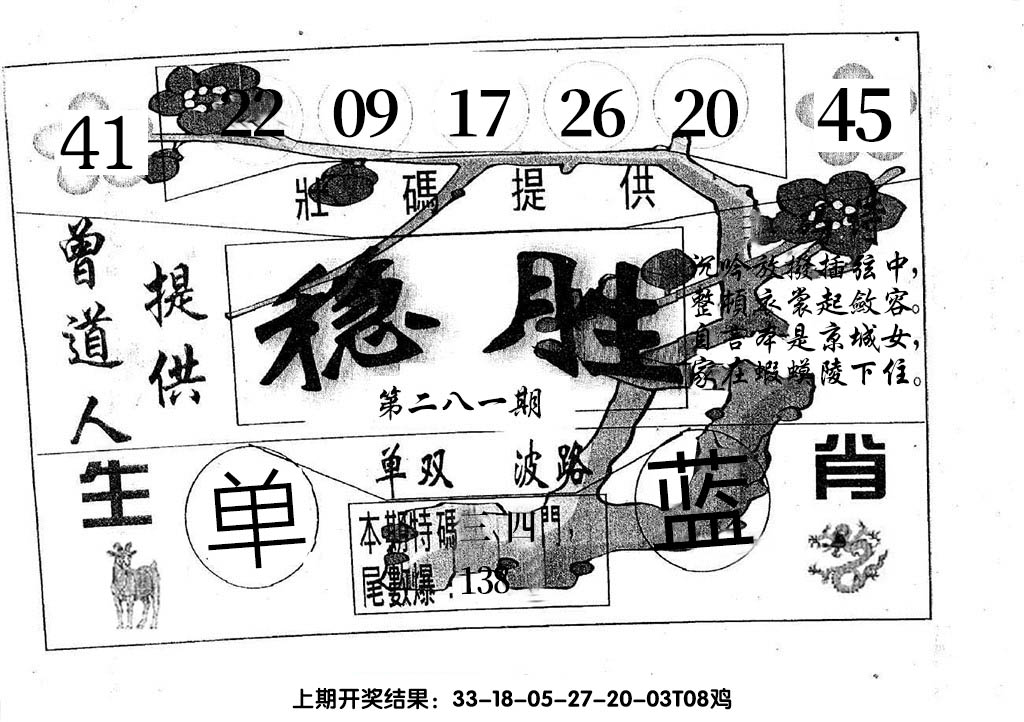 41 22 09 17 26 20 45
壯碼提供
曾道人
提供
稳胜
第二八一期
沉吟放撥插弦中，
整頓衣裳起斂容。
自言本是京城女，
家在蝦蟆陵下住。
单双 波路
生肖
单
蓝
本期特碼三、四門，
尾數爆：138
上期开奖结果：33-18-05-27-20-03T08鸡